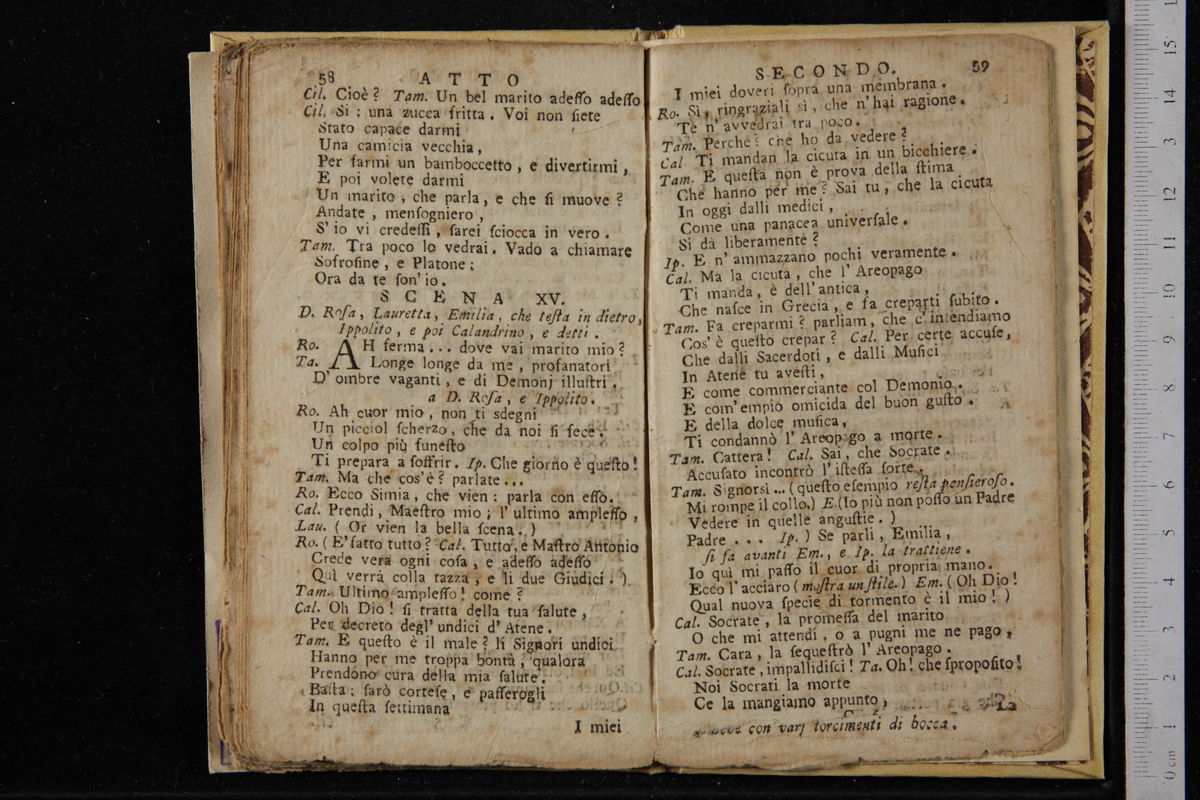 58 ATTO
Cil. Cioè? Tam. Un bel marito adeſſo adeſſo
Cil. Si: una zucca fritta. Voi non ſiete
Stato capace darmi
Una camicia vecchia,
Per farmi un bamboccetto, e divertirmi,
E poi volete darmi
Un marito, che parla, e che ſi muove?
Andate, menſogniero,
S'io vi credeſſi, ſarei ſciocca in vero.
Tam. Tra poco lo vedrai. Vado a chiamare
Sofroſine, e Platone;
Ora da te ſon'io.
SCENA XV.
D. Roſa, Lauretta, Emilia, che teſta in dietro,
Ippolito, e poi Calandrino, e detti.
Ro. AH ferma... dove vai marito mio?
Ta. Longe longe da me, profanatori
D'ombre vaganti, e di Demonj illuſtri.
a D. Roſa, e Ippolito.
Ro. Ah cuor mio, non ti sdegni
Un picciol ſcherzo, che da noi ſi fece.
Un colpo più funeſto
Ti prepara a ſoffrir. Ip. Che giorno è queſto!
Tam. Ma che cos'è? parlate...
Ro. Ecco Simia, che vien: parla con eſſo.
Cal. Prendi, Maeſtro mio; l'ultimo ampleſſo,
Lau. (Or vien la bella ſcena.)
Ro. (E'fatto tutto? Cal. Tutto, e Maſtro Antonio
Crede vera ogni coſa, e adeſſo adeſſo
Quì verrà colla tazza, e li due Giudici.)
Tam. Ultimo ampleſſo! come?
Cal. Oh Dio! ſi tratta della tua ſalute,
Per decreto degl'undici d'Atene.
Tam. E queſto è il male? li Signori undici
Hanno per me troppa bontà, qualora
Prendono cura della mia ſalute.
Baſta: ſarò corteſe, e paſſerogli
In queſta ſettimana
I miei
SECONDO. 59
I miei doveri ſopra una membrana.
Ro. Sì, ringraziali sì, che n'hai ragione.
Te n'avvedrai tra poco.
Tam. Perchè? che ho da vedere?
Cal Ti mandan la cicuta in un bicchiere.
Tam. E queſta non è prova della ſtima
Che hanno per me? Sai tu, che la cicuta
In oggi dalli medici,
Come una panacea univerſale.
Si dà liberamente?
Ip. E n'ammazzano pochi veramente.
Cal. Ma la cicuta, che l'Areopago
Ti manda, è dell'antica,
Che naſce in Grecia, e fa creparti ſubito.
Tam. Fa creparmi? parliam, che c'intendiamo
Cos'è queſto crepar? Cal. Per certe accuſe,
Che dalli Sacerdoti, e dalli Muſici
In Atene tu aveſti,
E come commerciante col Demonio.
E com'empio omicida del buon guſto.
E della dolce muſica,
Ti condannò l'Areopago a morte.
Tam. Cattera! Cal. Sai, che Socrate.
Accuſato incontrò l'iſteſſa ſorte.
Tam. Signorsì... (queſto eſempio reſta penſieroſo.
Mi rompe il collo.) E.(Io più non poſſo un Padre
Vedere in quelle anguſtie.)
Padre... Ip.) Se parli, Emilia,
ſi fa avanti Em., e Ip. la trattiene.
Io qui mi paſſo il cuor di propria mano.
Ecco l'acciaro (moſtra un ſtile.) Em. (Oh Dio!
Qual nuova ſpecie di tormento è il mio!)
Cal. Socrate, la promeſſa del marito
O che mi attendi, o a pugni me ne pago,
Tam. Cara, la ſequeſtrò l'Areopago.
Cal. Socrate, impallidiſci! Ta. Oh! che ſpropoſito!
Noi Socrati la morte
Ce la mangiamo appunto,
La
con varj torcimenti di bocca.